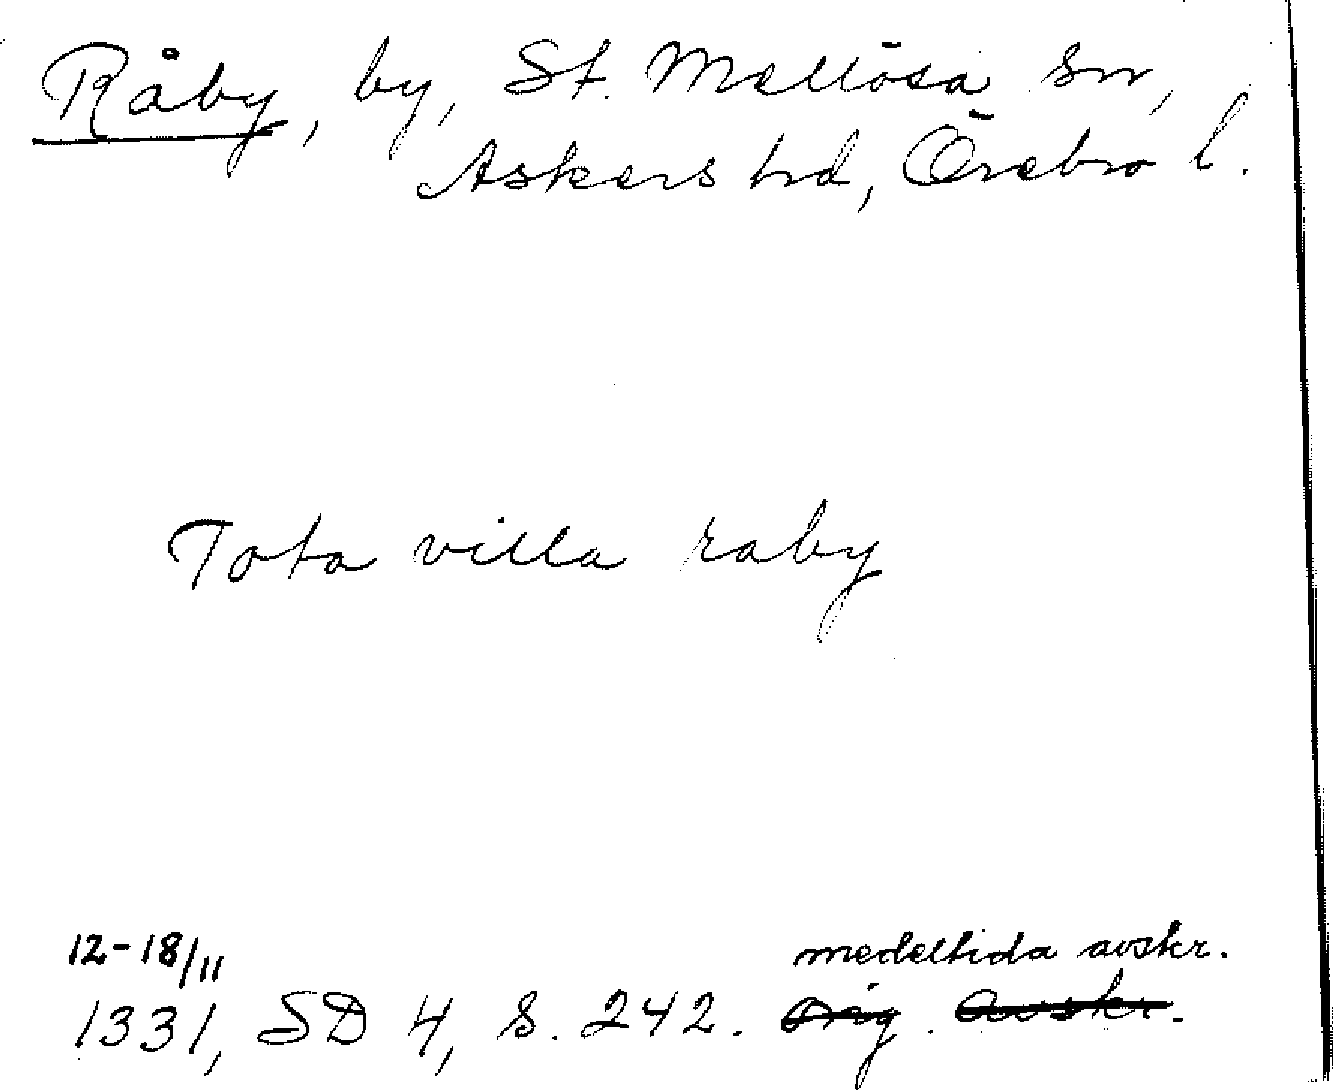 Råby, by, St. Mellösa sn,
Askers hd, Örebro l.
Tota villa raby
12-18/11 medeltida avskr.
1331, SD 4, s. 242. Orig. Avskr.